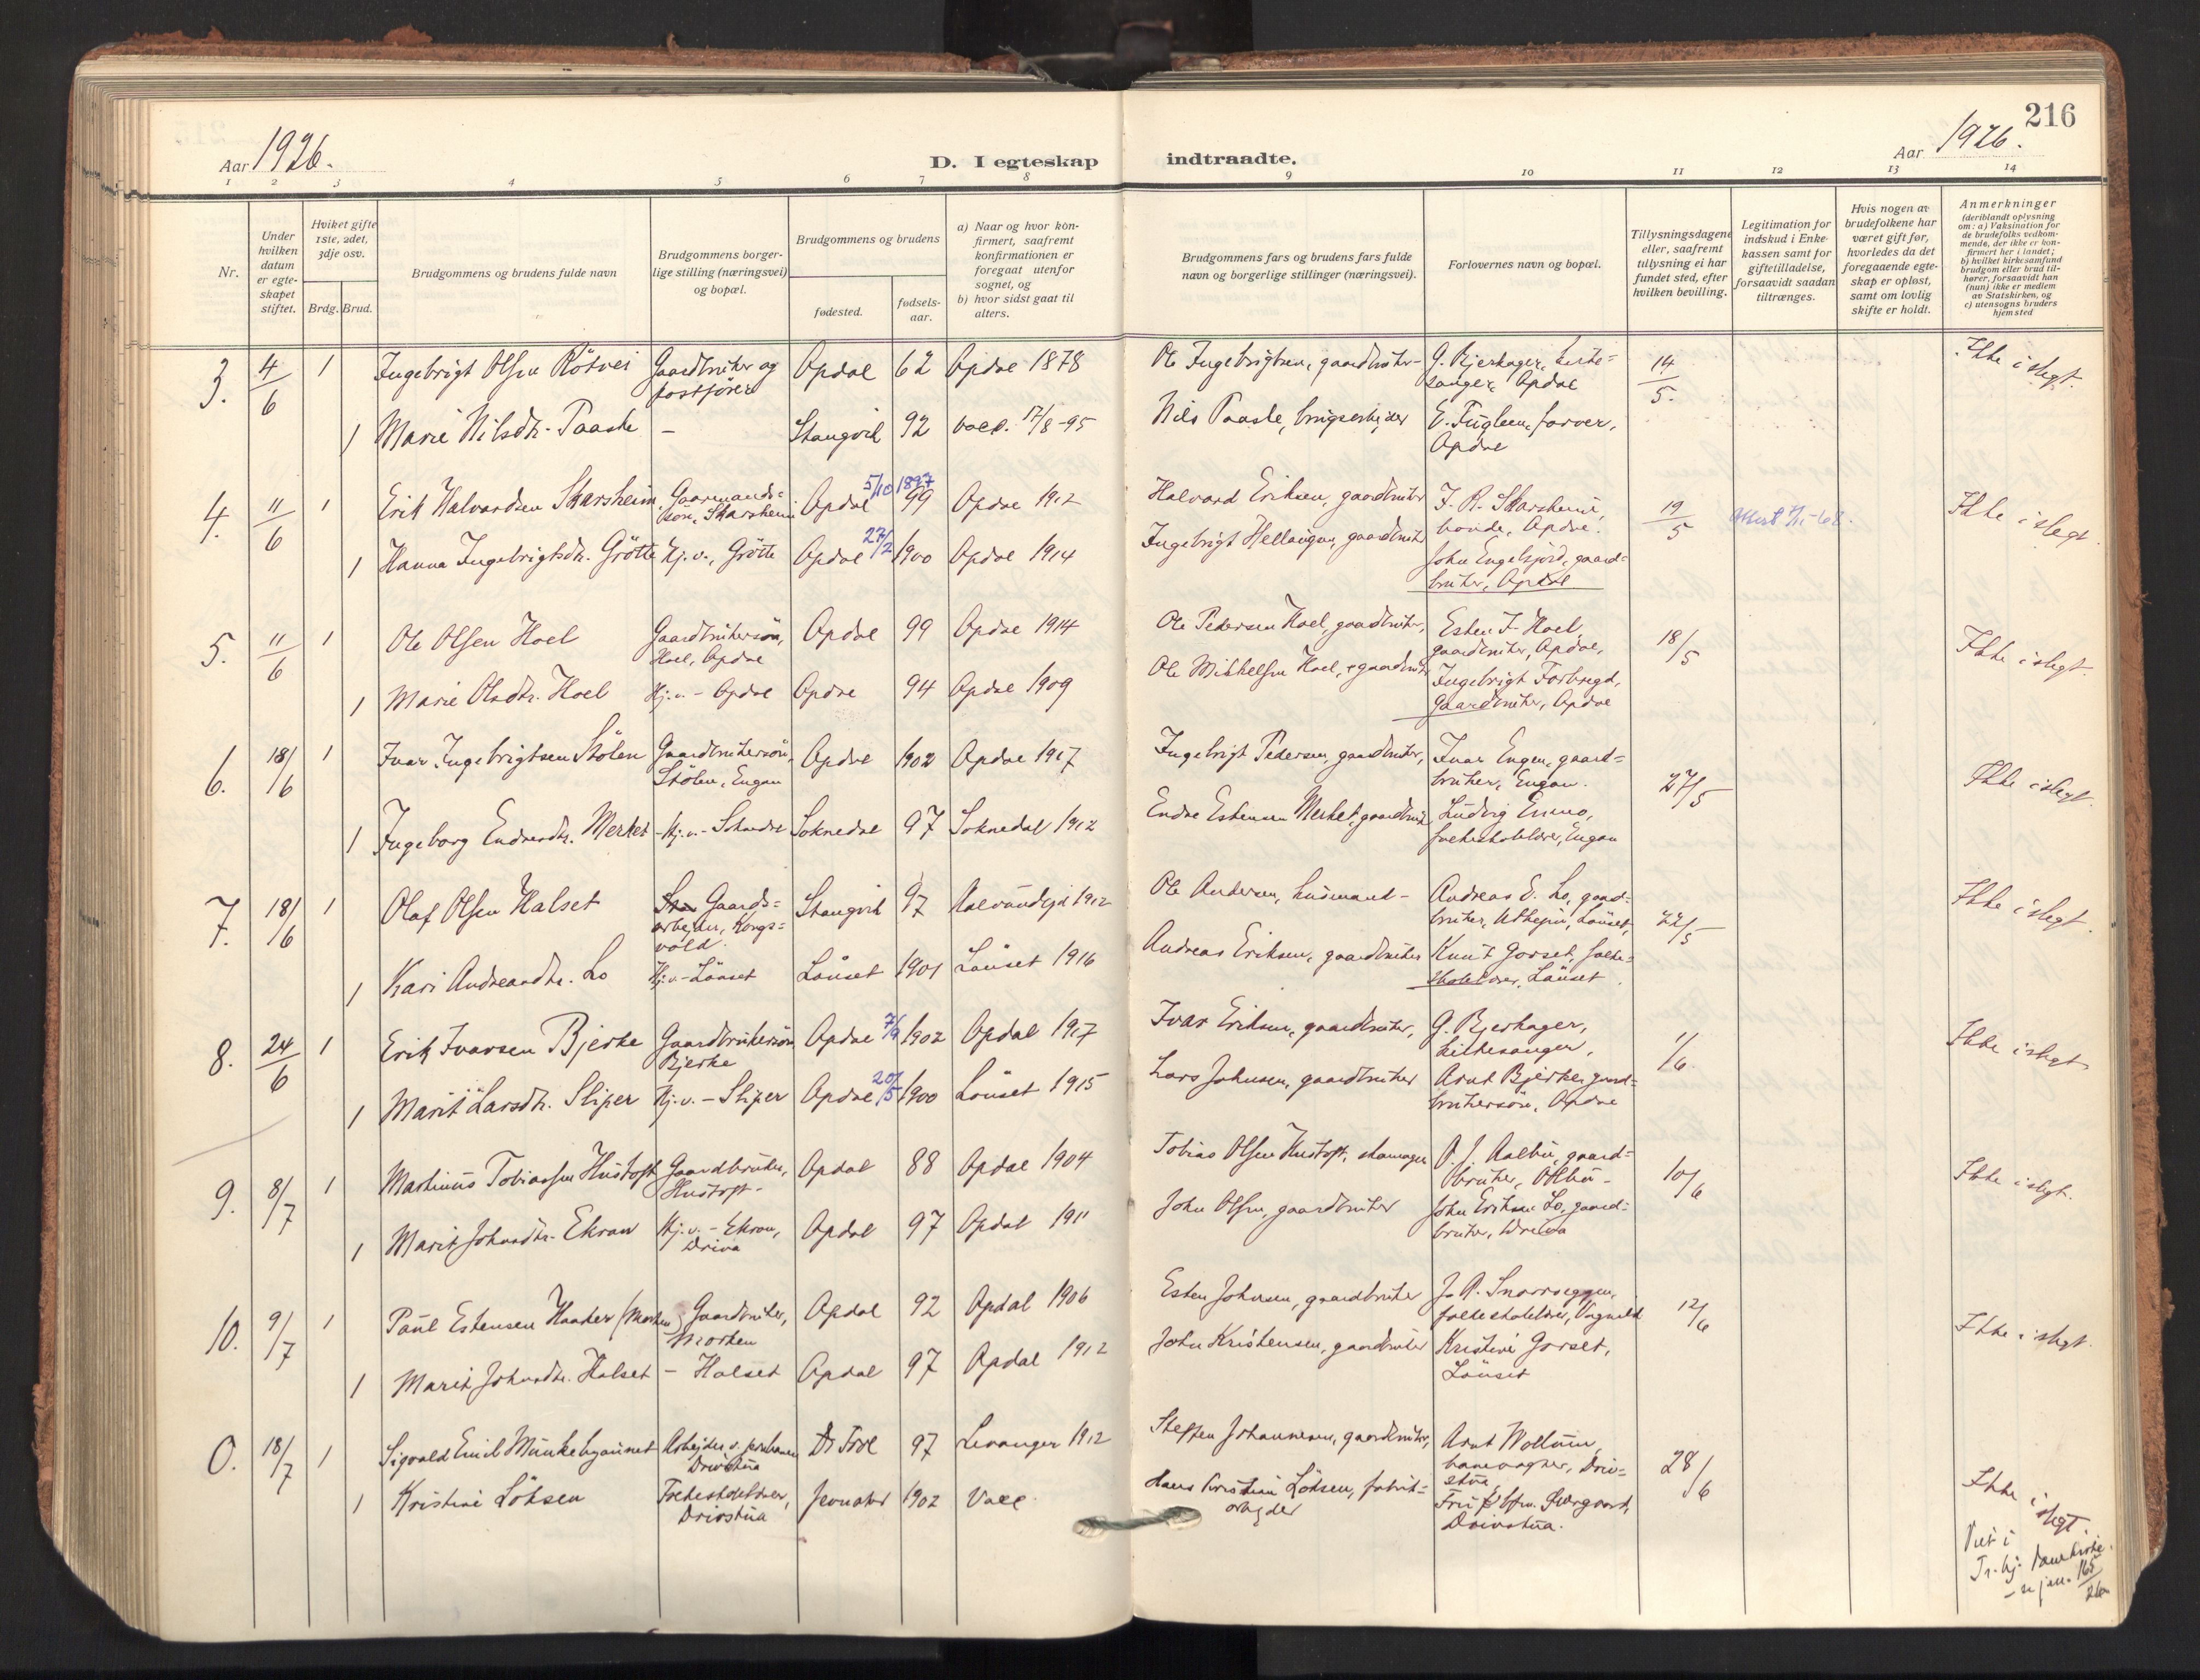 216
Aar 1926.
D. I egteskap
indtraadte.
Aar 1926.
1 2 3 4 5 6 7 8 9 10 11 12 13 14
Nr.
Under hvilken datum er egteskapet stiftet.
Hviket gifte 1ste, 2det, 3dje osv.
Brdg. Brud.
Brudgommens og brudens fulde navn
Brudgommens borgerlige stilling (næringsvei) og bopæl.
Brudgommens og brudens
fødested.
fødselsaar.
a) Naar og hvor konfirmert, saafremt konfirmationen er foregaat utenfor sognet, og
b) hvor sidst gaat til alters.
Brudgommens fars og brudens fars fulde navn og borgerlige stillinger (næringsvei).
Forlovernes navn og bopæl.
Tillysningsdagene eller, saafremt tillysning ei har fundet sted, efter hvilken bevilling.
Legitimation for indskud i Enkekassen samt for giftetilladelse, forsaavidt saadan tiltrænges.
Hvis nogen av brudefolkene har været gift før, hvorledes da det foregaaende egteskap er opløst, samt om lovlig skifte er holdt.
Anmerkninger
(deriblandt oplysning om: a) Vaksination for de brudefolks vedkommende, der ikke er konfirmert her i landet; b) hvilket kirkesamfund brudgom eller brud tilhører, forsaavidt han (nun) ikke er medlem av Statskirken, og c) utensogns bruders hjemsted
3. 4/6 1 Ingebrigt Olsen Rötvei Gaardbruker og postfører Opdal 62 Opdal 1878 Ole Ingebrigtsen, gaardbruker - G. Bjerkager, kirkesanger, Opdal 14/5. Ikke i slegt.
1 Marie Nilsdtr. Paaske - Stangvik 92 vacc. 17/8-95 Nils Paaske, brugsarbeider E. Fugleen, farver, Opdal
4. 11/6 1 Erik Halvardsen Skarsheim Gaarmandssön, Skarsheim Opdal 5/10 1897 99 Opdal 1912 Halvard Eriksen, gaardbruker J. R. Skarsheim, bonde, Opdal. 19/5 Ikke i slegt.
1 Hanna Ingebrigtsdtr. Grötte Hj.v., Grötte Opdal 27/2 1900 Opdal 1914 Ingebrigt Hellaugsen, gaardbruker John Engelsjord, gaardbruker, Opdal
5. 11/6 1 Ole Olsen Hoel Gaardbrukersön, Hoel, Opdal Opdal 99 Opdal 1914 Ole Pedersen Hoel, gaardbruker, Esten J. Hoel, gaardbruker, Opdal, 18/5 Ikke i slegt.
1 Marie Olsdtr. Hoel Hj.v. - Opdal Opdal 94 Opdal 1909 Ole Mikkelsen Hoel, gaardbruker Ingebrigt Forbregd, Gaardbruker, Opdal
6. 18/6 1 Ivar Ingebrigtsen Stölen Gaardbrukersön, Stölen, Engan Opdal 1902 Opdal 1917 Ingebrigt Pedersen, gaardbruker, Ivar Engen, gaardbruker, Engan. 27/5 Ikke i slegt.
1 Ingeborg Endresdtr. Merket - Hj.v. - Soknedal Soknedal 97 Soknedal 1912 Endre Estensen Merket, gaardbruker Ludvig Enmo, folkeskolelærer, Engan
7. 18/6 1 Olaf Olsen Halset Gaardsarbeider, Kongsvold. Stangvik 97 1912 Ole Andersen, husmand - Andreas E. Lo, gaardbruker, Lönset, 22/5 Ikke i slegt.
1 Kari Andreasdtr. Lo Hj.v. - Lönset Lönset 1901 Lönset 1916 Andreas Eriksen, gaardbruker Knut Gorset, folkeskolelærer, Lönset.
8. 24/6 1 Erik Ivarsen Bjerke Gaardbrukersön Bjerke Opdal 7/9 1902 Opdal 1917 Ivar Eriksen, gaardbruker, G. Bjerkager, kirkesanger, 1/6. Ikke i slegt
1 Marit Larsdtr. Sliper Hj.v. - Sliper Opdal 20/5 1900 Lönset 1915 Lars Johnsen, gaardbruker Arnt Bjerke, gaardbrukersön, Opdal
9. 8/7 1 Martinus Tobiassen Hustoft Gaardbruker, Hustoft - Opdal 88 Opdal 1904 Tobias Olsen Hustoft, skomager O. J. Aalbu, gaardbruker, Aalbu - 10/6 Ikke i slegt.
1 Marit Johnsdtr. Ekran Hj.v. - Ekran, Driva Opdal 97 Opdal 1911 John Olsen, gaardbruker John Eriksen Lo, gaardbruker, Driva
10. 9/7 1 Paul Estensen Haaker (Morken) Gaardbruker, Morken Opdal 92 Opdal 1906 Esten Johnsen, gaardbruker J. R. Snorroeggen, folkeskolelærer, Vognild 12/6 Ikke i slegt.
1 Marit Johnsdtr. Halset - Halset Opdal 97 Opdal 1912 John Kristensen, gaardbruker Kristine Gorset, Lönset
0. 18/7 1 Sigvald Emil Munkebyaunet Arbeider v. jernbanen Drivstua 97 Levanger 1912 Steffen Johannesen, gaardbruker, Arnt Wollum, banevogter, Drivstua, 28/6 Ikke i slegt.
1 Kristine Löksen Folkeskolelærer, Drivstua 1902 Vacc. Hans Kristian Löksen, fabrikarbejder Drivstua.
Viet i
Tr.hj.
165/26